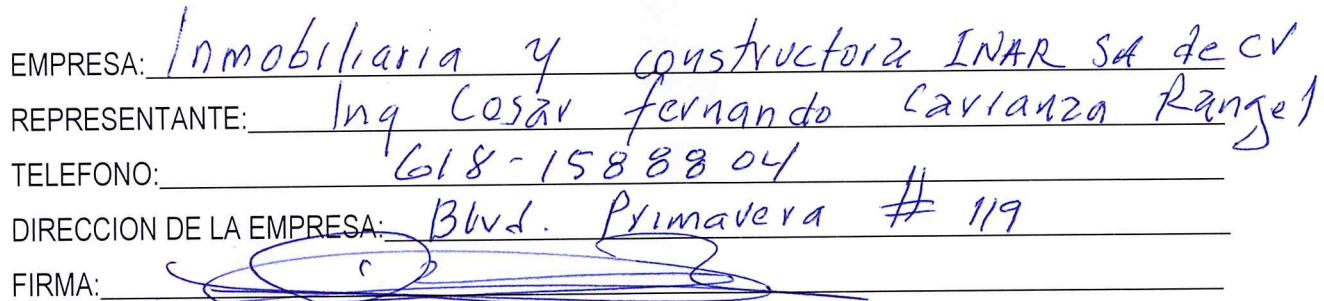 EMPRESA: Inmobiliaria y constructora INAR SA de CV
REPRESENTANTE: Ing Cesar fernando Carranza Rangel
TELEFONO: 618-1588804
DIRECCION DE LA EMPRESA: Blvd. Primavera # 119
FIRMA: